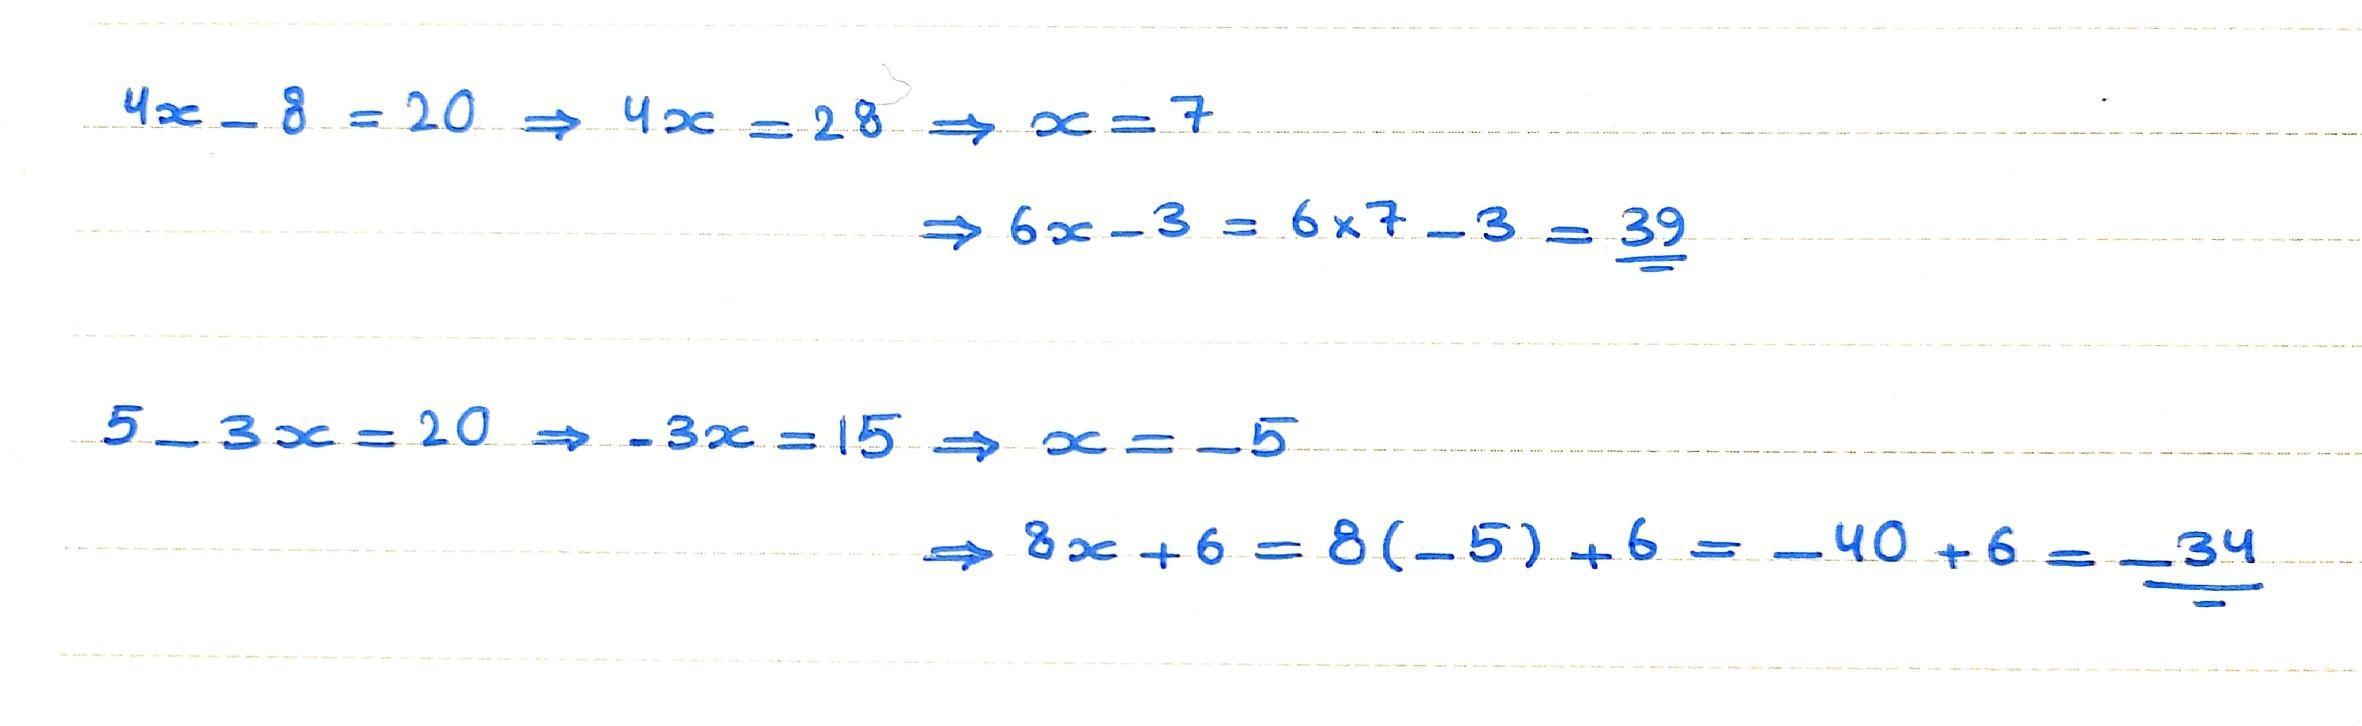 4x - 8 = 20 ⇒ 4x = 28 ⇒ x = 7
⇒ 6x - 3 = 6 × 7 - 3 = 39
5 - 3x = 20 ⇒ -3x = 15 ⇒ x = -5
⇒ 8x + 6 = 8(-5) + 6 = -40 + 6 = -34